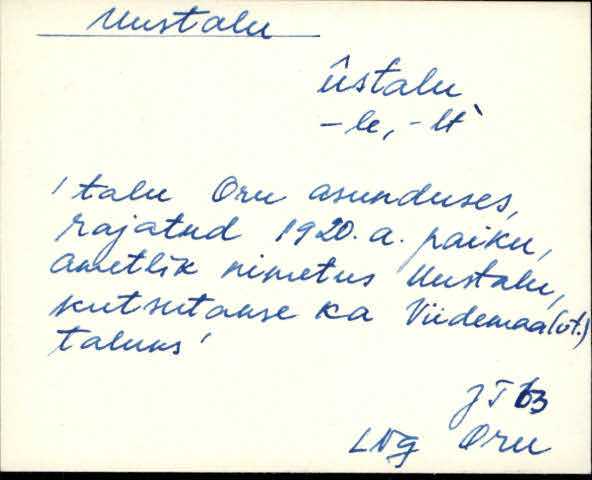 Uustalu
ûstalu
-le, -lt`
'talu Oru asunduses,
rajatud 1920. a. paiku,
ametlik nimetus Uustalu,
kutsutakse ka Viidemaa (vt.)
taluks'
JT 63
LNg Oru